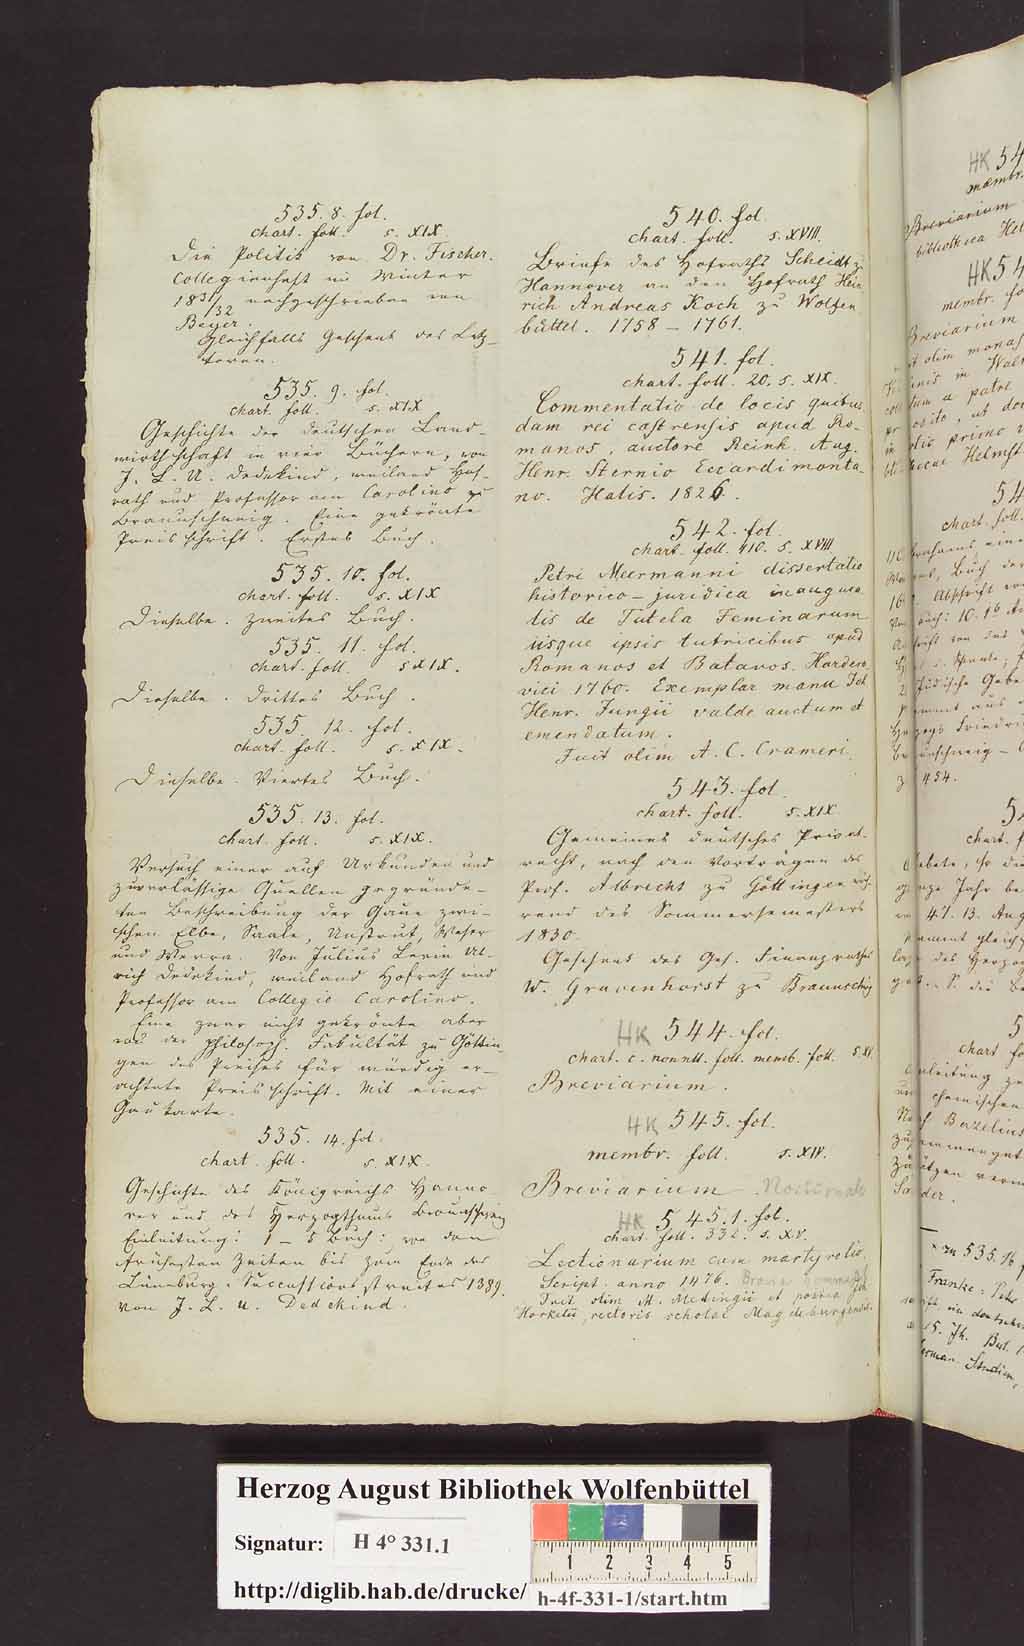 535. 8. fol.
chart. foll. s. XIX.
Die Politik von Dr. Fischer.
Collegienheft im Winter
1831/32 nachgeschrieben von
Beyer.
Gleichfalls Geschenk des Letz-
teren.
535. 9. fol.
chart. foll. s. XIX
Geschichte der deutschen Land-
wirthschaft in vier Büchern, von
J. L. U. Dedekind, weiland Hof-
rath und Professor am Carolino zu
Braunschweig. Eine gekrönte
Preisschrift. Erstes Buch.
535. 10. fol.
chart. foll. s. XIX
Dieselbe. Zweites Buch.
535. 11. fol.
chart. foll. s XIX.
Dieselbe. Drittes Buch.
535. 12. fol.
chart. foll. s. XIX.
Dieselbe. Viertes Buch.
535. 13. fol.
chart. foll. s. XIX.
Versuch einer auf Urkunden und
zuverlässige Quellen gegründe-
ten Beschreibung der Gaue zwi-
schen Elbe, Saale, Unstrut, Weser
und Werra. Von Julius Levin Ul-
rich Dedekind, weiland Hofrath und
Professor am Collegio Carolino.
Eine zwar nicht gekrönte aber
von der philosoph. Fakultät zu Göttin-
gen des Preises für würdig er-
achtete Preisschrift. Mit einer
Gaukarte.
535. 14. fol.
chart. foll. s. XIX.
Geschichte des Königreichs Hanno-
ver und des Herzogthums Braunschweig
Einleitung: 1 – 5 Buch: von den
frühesten Zeiten bis zum Ende des
Lüneburg. Successionsstreites 1389.
von J. L. U. Dedekind.
540. fol.
chart. foll. s. XVIII.
Briefe des Hofraths Scheidt zu
Hannover an den Hofrath Hein
rich Andreas Koch zu Wolfen
büttel. 1758 – 1761.
541. fol.
chart. foll. 20. s. XIX.
Commentatio de locis quibus
dam rei castrensis apud Ro-
manos, auctore Reinh. Aug.
Henr. Sternio Eccardimonta
no. Halis. 1826.
542. fol.
chart. foll. 110. s. XVIII
Petri Meermanni dissertatio
historico-juridica inaugura
lis de Tutela Feminarum
iisque ipsis tutricibus apud
Romanos et Batavos. Hardero
vici 1760. Exemplar manu Joh
Henr. Jungii valde auctum et
emendatum.
Fuit olim A. C. Crameri.
543. fol.
chart. foll. s. XIX
Gemeines deutsches Privat-
recht, nach den Vorträgen des
Prof. Albrecht zu Göttingen wäh-
rend des Sommersemesters
1830.
Geschenk des Geh. Finanzrathes
W. Gravenhorst zu Braunschweig
HK 544. fol.
chart. c. nonnll. foll. memb. foll. s XV.
Breviarium.
HK 545. fol.
membr. foll. s. XIV.
Breviarium Nocturnale
HK 545. 1. fol.
chart. foll. 332. s. XV.
Lectionarium cum martyrolio.
Script. anno 1476.
Fuit olim M. Medingii et postea Joh.
Horkelii, rectoris scholae Magdeburgensis.
HK 54
membr.
Breviarium
bibliotheca Hel
HK 54
membr. fo
Breviarium
olim monas
in Wal
a patre
ut do
primo
Helmst
54
chart. foll.
Buch der
Abschrift
Jüdische Gebe
454.
chart. f
Jahr be
47. 13. Aug
gleich
des Herzog
chart fo
chemischen
Berzelius
× zu 535. 16 f
Franke: Petr
German. Studien,
Herzog August Bibliothek Wolfenbüttel
Signatur: H 4° 331.1
1 2 3 4 5
http://diglib.hab.de/drucke/ h-4f-331-1/start.htm